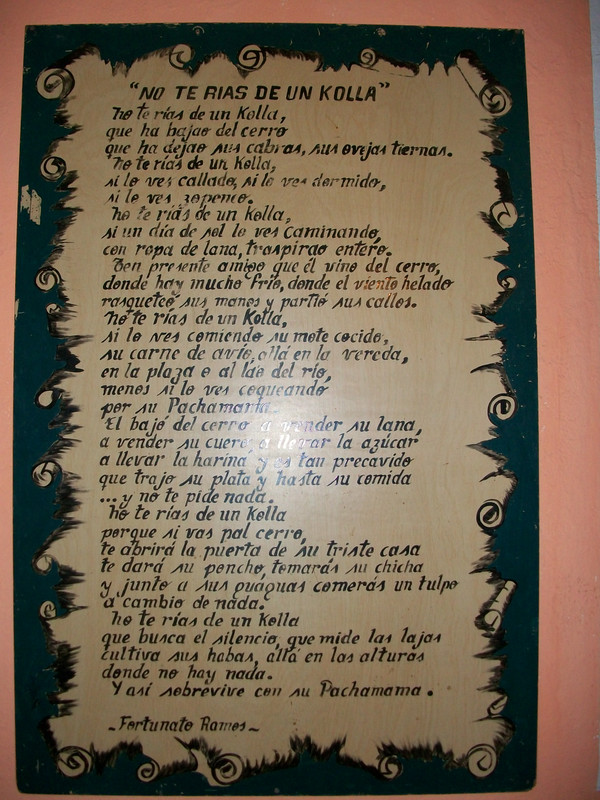 "NO TE RIAS DE UN KOLLA"
No te rías de un Kolla,
que ha bajao del cerro
que ha dejao sus cabras, sus ovejas tiernas.
No te rías de un Kolla,
si lo ves callado, si lo ves dormido,
si lo ves zopenco.
No te rías de un Kolla,
si un día de sol lo ves caminando,
con ropa de lana, traspirao entero.
Ten presente amigo que él vino del cerro,
donde hay mucho frío, donde el viento helado
rasqueteó sus manos y partió sus callos.
No te rías de un Kolla,
si lo ves comiendo su mote cocido,
su carne de avío, allá en la vereda,
en la plaza o al lao del río,
menos si lo ves coqueando
por su Pachamama.
El bajó del cerro a vender su lana,
a vender su cuero, a llevar la azúcar
a llevar la harina y es tan precavido
que trajo su plata y hasta su comida
... y no te pide nada.
No te rías de un Kolla
porque si vas pal cerro,
te abrirá la puerta de su triste casa
te dará su poncho, tomarás su chicha
y junto a sus guaguas comerás un tulpo
a cambio de nada.
No te rías de un Kolla
que busca el silencio, que mide las lajas
cultiva sus habas, allá en las alturas
donde no hay nada.
Y así sobrevive con su Pachamama.
- Fortunato Ramos -